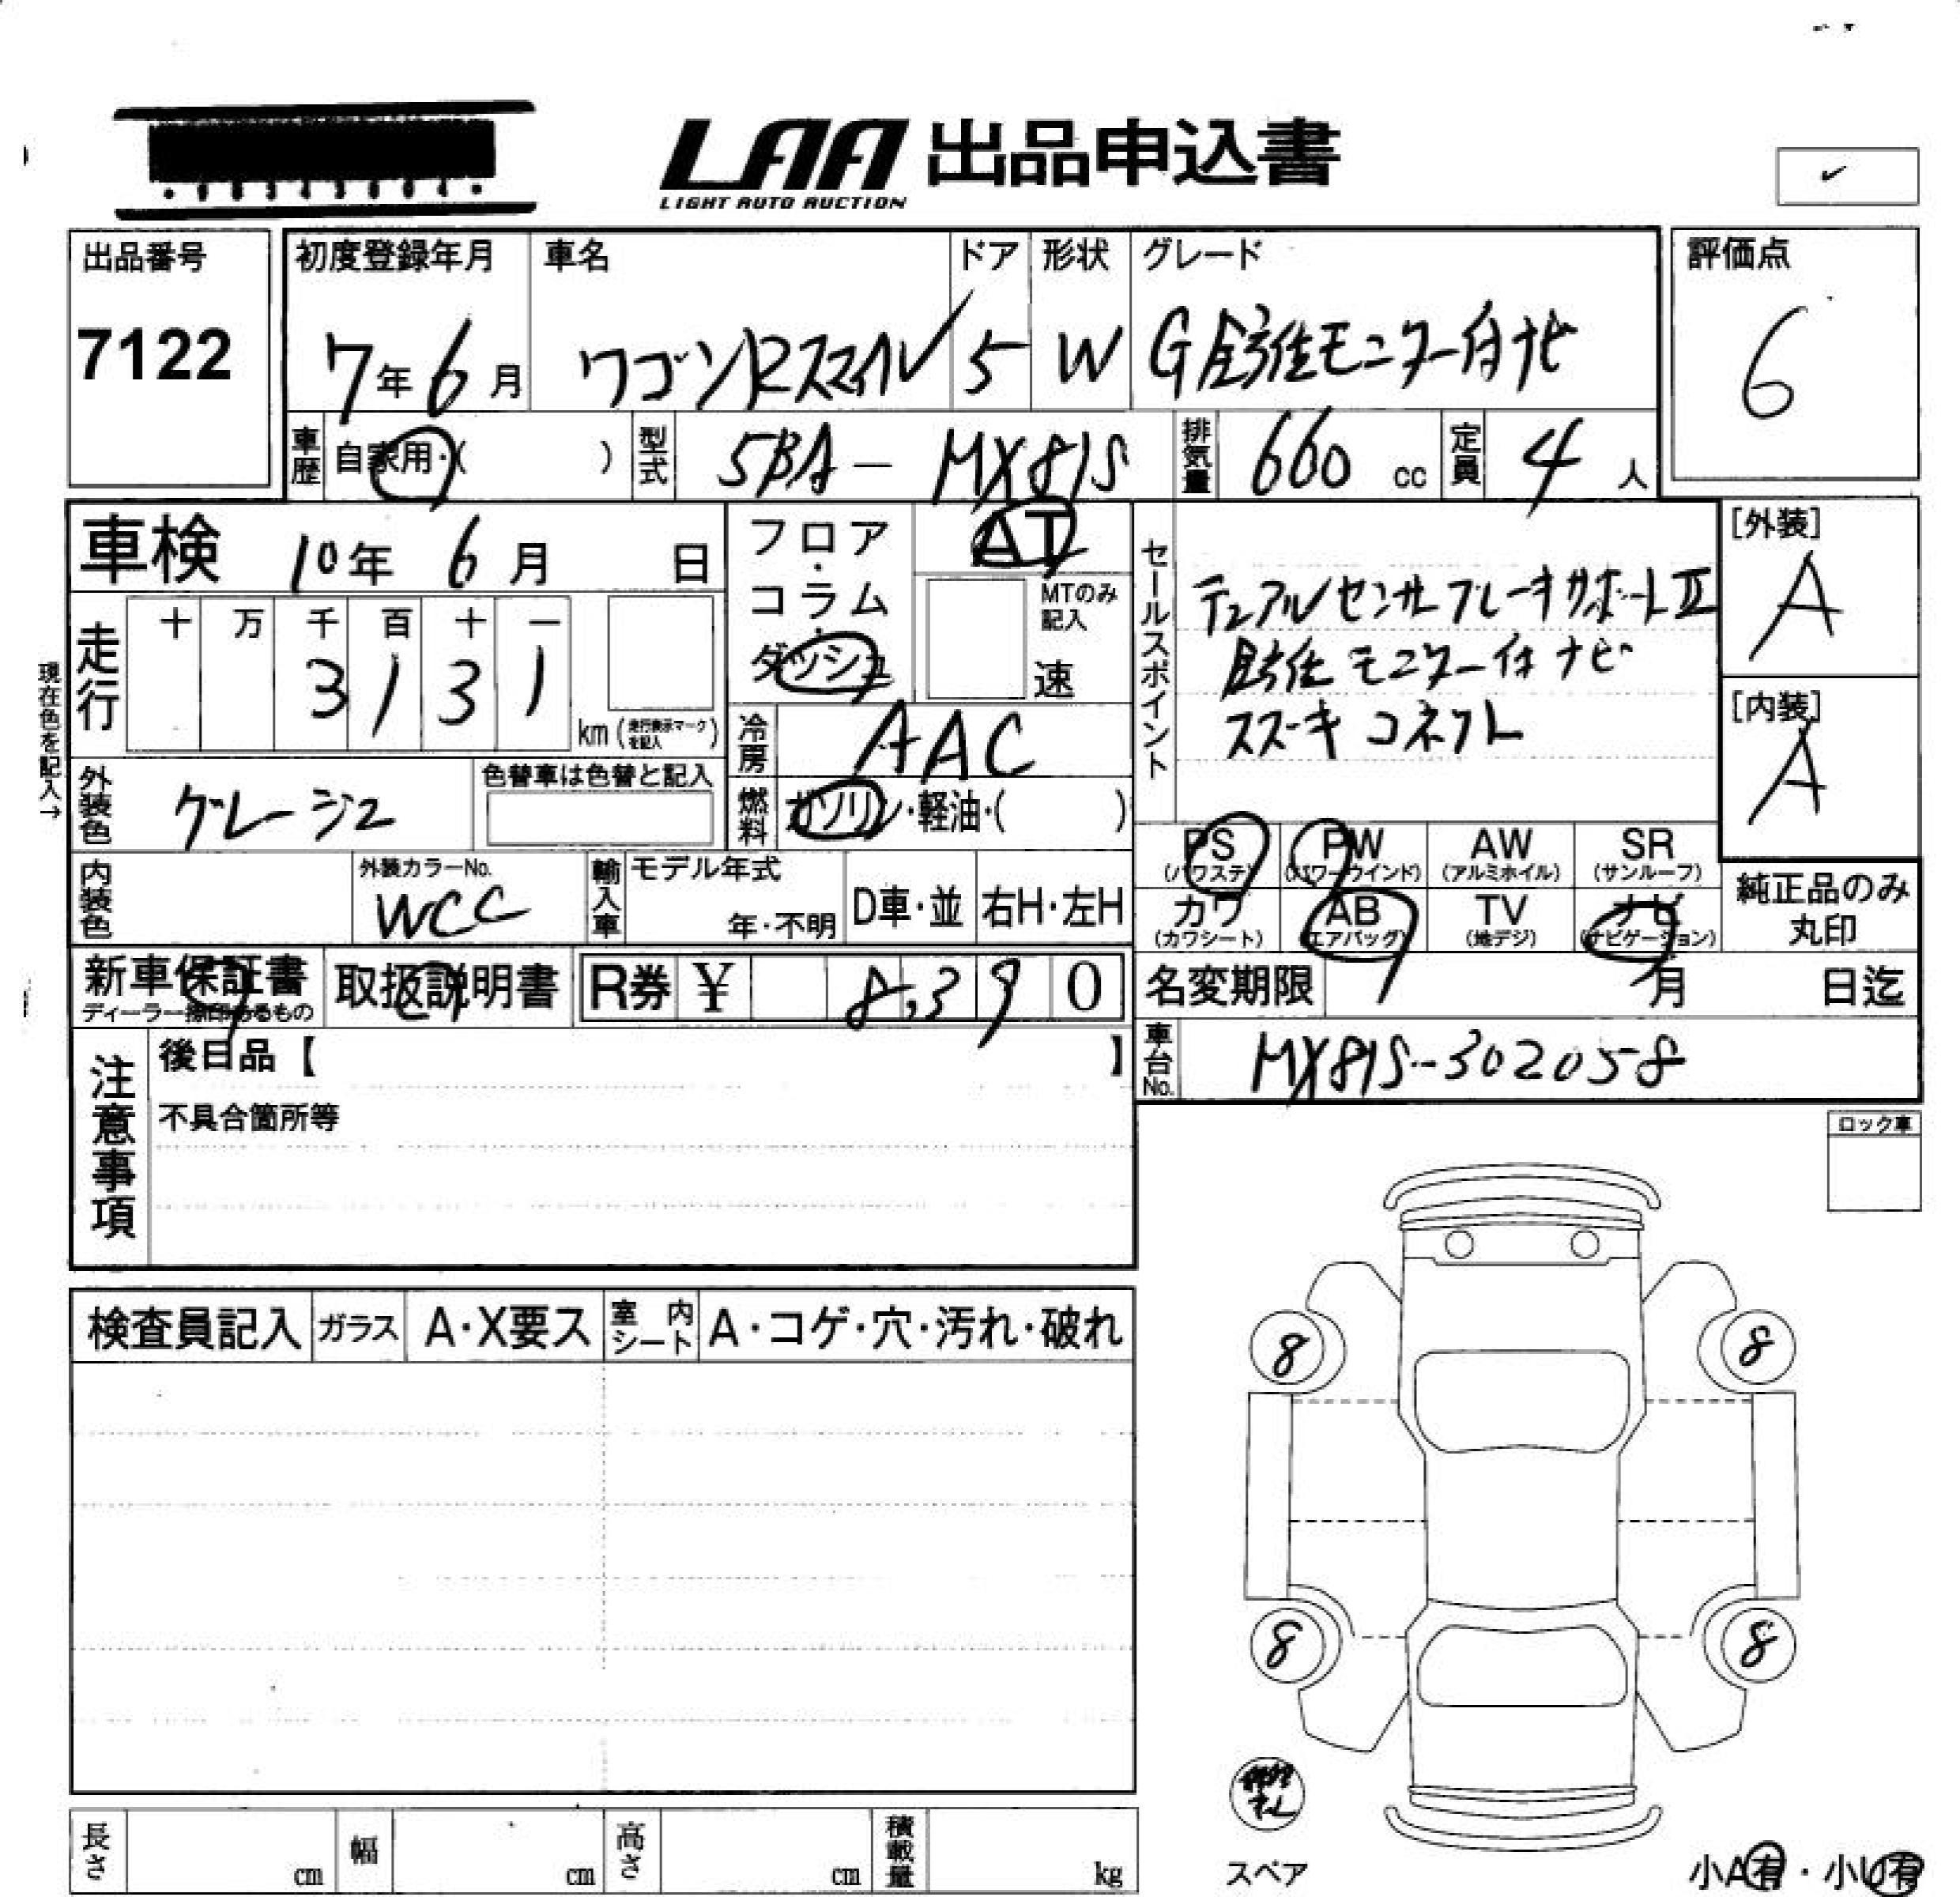 LAA 出品申込書
LIGHT AUTO AUCTION
出品番号
7122
初度登録年月
7年6月
車名
ワゴンRスマイル
ドア
5
形状
W
グレード
G 全方位モニター付ナビ
評価点
6
車歴
自家用・( )
型式
5BA-MX81S
排気量
660 cc
定員
4 人
車検 10年 6月 日
フロア・コラム・ダッシュ
AT
MTのみ記入
速
走行
十 万 千 百 十 一
3 1 3 1
km(走行表示マークを記入)
現在色を記入→
冷房
AAC
燃料
ガソリン・軽油・( )
外装色
グレージュ
色替車は色替と記入
内装色
外装カラーNo.
WCC
輸入車
モデル年式
年・不明
D車・並
右H・左H
セールスポイント
デュアルセンサーブレーキサポートⅡ
全方位モニター付ナビ
スズキコネクト
[外装]
A
[内装]
A
PS
(パワステ)
PW
(パワーウインド)
AW
(アルミホイル)
SR
(サンルーフ)
カワ
(カワシート)
AB
(エアバッグ)
TV
(地デジ)
ナビ
(ナビゲーション)
純正品のみ
丸印
新車保証書
ディーラー捺印あるもの
取扱説明書
R券 ¥ 8,390
名変期限 月 日迄
車台No.
MX81S-302058
注意事項
後日品【 】
不具合箇所等
ロック車
検査員記入
ガラス
A・X要ス
室内シート
A・コゲ・穴・汚れ・破れ
8
8
8
8
スペア
小A有・小U有
長さ cm
幅 cm
高さ cm
積載量 kg